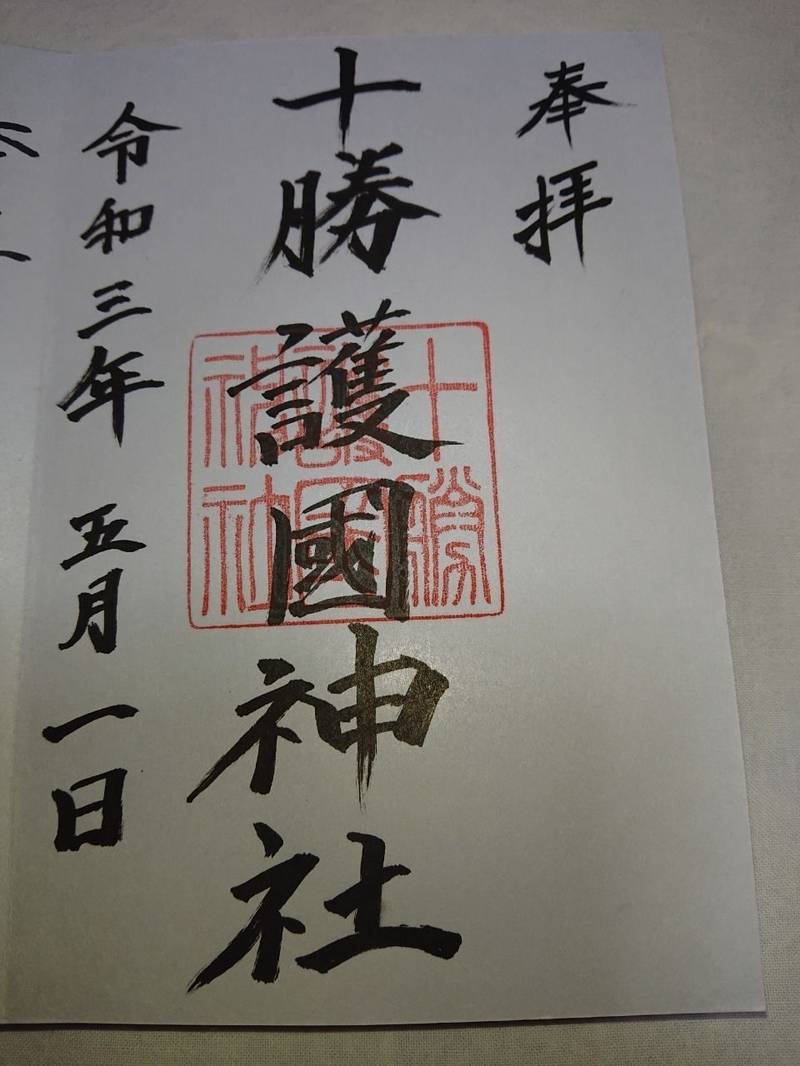 奉拝
十勝護國神社
十勝護國神社
令和三年 五月一日